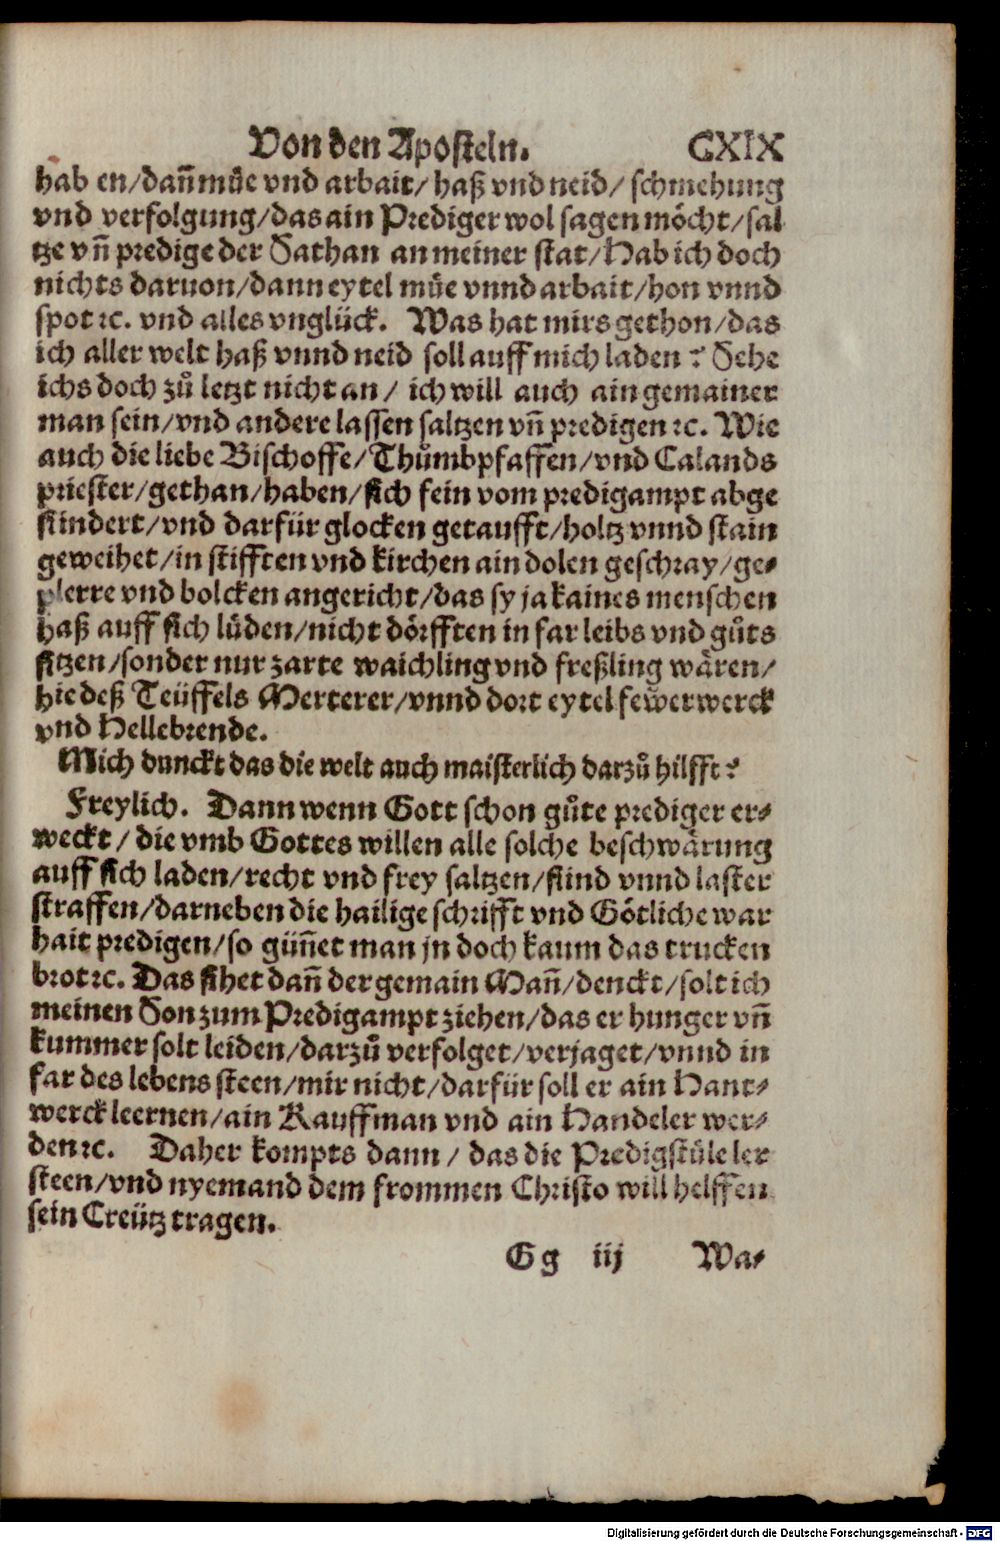 Von den Aposteln. CXIX
hab en/dañ müe vnd arbait/ haß vnd neid/ schmehung
vnd verfolgung/das ain Prediger wol sagen möcht/sal
tze vñ predige der Sathan an meiner stat/Hab ich doch
nichts daruon/dann eytel müe vnnd arbait/hon vnnd
spot ꝛc. vnd alles vnglück. Was hat mirs gethon/das
ich aller welt haß vnnd neid soll auff mich laden? Sehe
ichs doch zů letzt nicht an/ ich will auch ain gemainer
man sein/vnd andere lassen saltzen vñ predigen ꝛc. Wie
auch die liebe Bischoffe/Thůmbpfaffen/vnd Calands
priester/gethan/haben/sich fein vom predigampt abge
sündert/vnd darfür glocken getaufft/holtz vnnd stain
geweihet/in stifften vnd kirchen ain dolen geschray/ge⸗
plerre vnd bolcken angericht/das sy ja kaines menschen
haß auff sich lüden/nicht dörfften in far leibs vnd gůts
sitzen/sonder nur zarte waichling vnd freßling wären/
hie deß Teüffels Merterer/vnnd dort eytel fewerwerck
vnd Hellebrende.
Mich dunckt das die welt auch maisterlich darzů hilfft?
Freylich. Dann wenn Gott schon gůte prediger er⸗
weckt/ die vmb Gottes willen alle solche beschwärung
auff sich laden/recht vnd frey saltzen/sünd vnnd laster
straffen/darneben die hailige schrifft vnd Götliche war
hait predigen/so güñet man jn doch kaum das trucken
brot ꝛc. Das sihet dañ der gemain Mañ/denckt/solt ich
meinen Son zum Predigampt ziehen/das er hunger vñ
kummer solt leiden/darzů verfolget/verjaget/vnnd in
far des lebens steen/mir nicht/darfür soll er ain Hant⸗
werck leernen/ain Kauffman vnd ain Handeler wer⸗
den ꝛc. Daher kompts dann/ das die Predigstüle ler
steen/vnd nyemand dem frommen Christo will helffen
sein Creütz tragen.
Gg iij Wa⸗
Digitalisierung gefördert durch die Deutsche Forschungsgemeinschaft - DFG